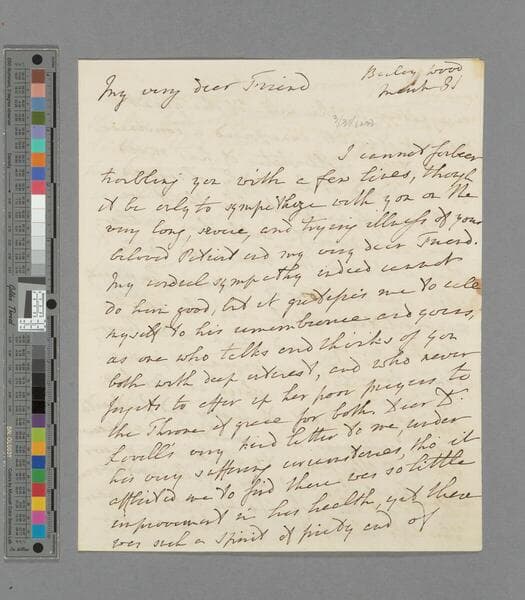 Barley Wood
March 31
My very dear Friend
I cannot forbear
troubling you with a few lines, though
it be only to sympathize with you on the
very long, severe, and trying illness of your
beloved Patient and my very dear Friend.
My cordial sympathy indeed cannot
do him good, but it gratifies me to call
myself to his remembrance and yours,
as one who talks and thinks of you
both with deep interest, and who never
forgets to offer up her poor prayers to
the Throne of grace for both. Dear Dr.
Lovell's very kind letter to me, under
his very suffering circumstances, tho it
afflicted me to find there was so little
improvement in his health, yet there
was such a spirit of piety and of